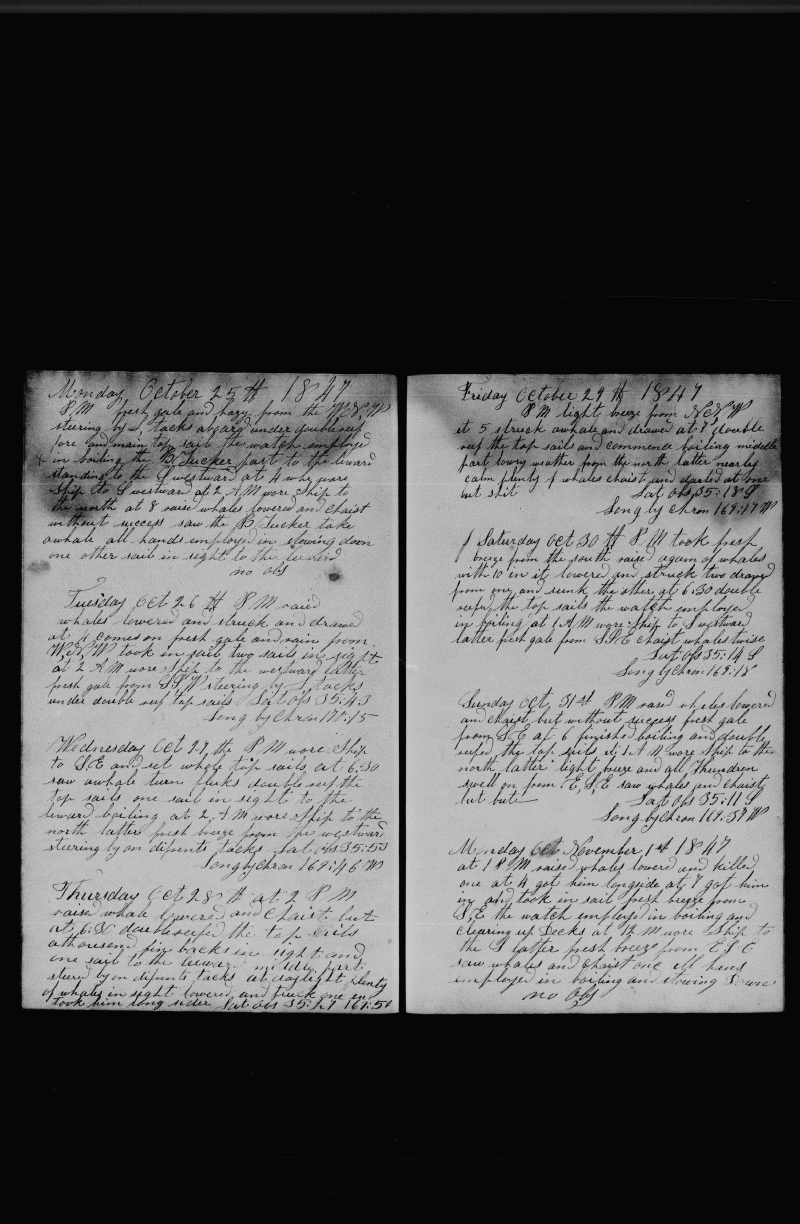 Monday October 25th 1847
P.M fresh gale and hazy from the W.N.W
steering by S tacks aboard under double reef
fore and main top sails the watch employed
in boiling the B Tucker part to the leward
standing to the S westward at 4 wore
Ship to S westward at 2 A M wore Ship to
the north at 8 raise whales lowered and chaist
without success saw the B Tucker take
awhale all hands employed in stowing down
one other sail in sight to the leeward
no obs
Tuesday Oct 26th P M raised
whales lowered and struck and drawed
at 4 comes on fresh gale and rain from
W.S.W took in sail two sails in sight
at 2 A M wore Ship to the westward latter
fresh gale from SSW steering by S tacks
under double reef top sails Lat obs 35:43
Long by Chron 170:15
Wednesday Oct 27, the P.M wore Ship
to S.E and set whole top sails at 6:30
saw awhale turn fluks double reef the
top sails one sail in sight to the
leward boiling at 2 A M wore Ship to the
north latter fresh breeze from the westward
steering by on difrents tacks Lat obs 35:53
Long by Chron 169:46 W
Thursday Oct 28th at 2 P M
raise whale lowered and Chaist but
at 6:30 double reefed the top sails
athousend fin backs in sight and
one sail to the leeward middle part
steerd by on difrents tacks at daylight plenty
of whales in sight lowered and struck one in
took him long sider Lat obs 35:27 169:50
Friday October 29th 1847
P M light breeze from N.N.W
at 5 struck awhale and drawed at 7 double
reef the top sails and commence boiling middle
part lowry weather from the north latter nearly
calm plenty of whales chaist and darted at one
but spit Lat obs 35:18 S
Long by Chron 169:17 W
Saturday Oct 30th P M took fresh
breeze from the south raised agam of whales
with 10 in it lowered and struck two drawed
from one and sunk the other at 6:30 double
reefed the top sails the watch employed
in boiling at 1 A.M wore Ship to S westward
latter fest gale from S.S.E chaist whales twise
Lat obs 35:14 S
Long by Chron 169:18
Sunday Oct, 31st P.M raised whales lowered
and chaist but without success fresh gale
from S.E at 6 finished boiling and double
reefed the top sails at 1 A M wore Ship to the
north latter light breeze and all
swell on from E,S,E saw whales and chaist
but bute Lat obs 35:11 S
Long by Chron 169:37 W
Monday Oct November 1st 1847
at 1 P M raise whales lowered and killed
one at 4 got him longside at 7 got him
in and took in sail fresh breeze from
S,E the watch employed in boiling and
clearing up Decks at 12 M wore Ship to
the S latter fresh breeze from E S E
saw whales and chaist one all hands
employed in boiling and stowing Down
no Obs